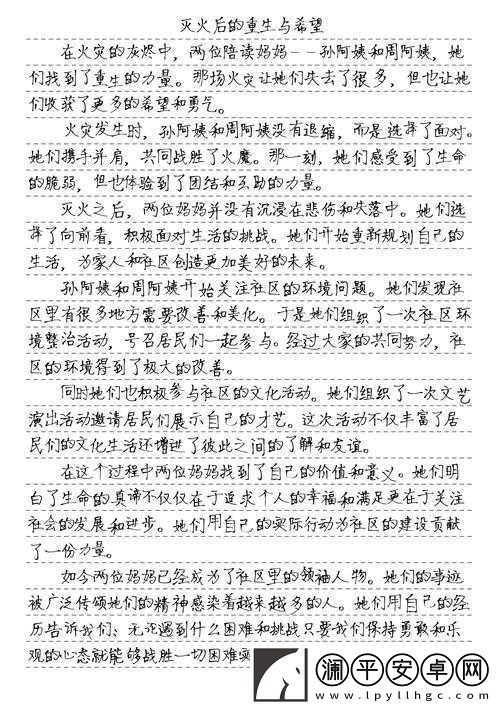 灭火后的重生与希望
在火灾的灰烬中，两位陪读妈妈－－孙阿姨和周阿姨，她
们找到了重生的力量。那场火灾让她们失去了很多，但也让她
们收获了更多的希望和勇气。
火灾发生时，孙阿姨和周阿姨没有退缩，而是选择了面对。
她们携手并肩，共同战胜了火魔。那一刻，她们感受到了生命
的脆弱，但也体验到了团结和互助的力量。
灭火之后，两位妈妈并没有沉浸在悲伤和失落中。她们选
择了向前看，积极面对生活的挑战。她们开始重新规划自己的
生活，为家人和社区创造更加美好的未来。
孙阿姨和周阿姨开始关注社区的环境问题。她们发现社
区里有很多地方需要改善和美化。于是她们组织了一次社区环
境整治活动，号召居民们一起参与。经过大家的共同努力，社
区的环境得到了极大的改善。
同时她们也积极参与社区的文化活动。她们组织了一次文艺
演出活动邀请居民们展示自己的才艺。这次活动不仅丰富了居
民们的文化生活还增进了彼此之间的了解和友谊。
在这个过程中两位妈妈找到了自己的价值和意义。她们明
白了生命的真谛不仅仅在于追求个人的幸福和满足更在于关注
社会的发展和进步。她们用自己的实际行动为社区的建设贡献
了一份力量。
如今两位妈妈已经成为了社区里的领袖人物。她们的事迹
被广泛传颂她们的精神感染着越来越多的人。她们用自己的经
历告诉我们：无论遇到什么困难和挑战只要我们保持勇敢和乐
观的心态就能够战胜一切困难实
澜平安卓网
www.lpyllhgc.com